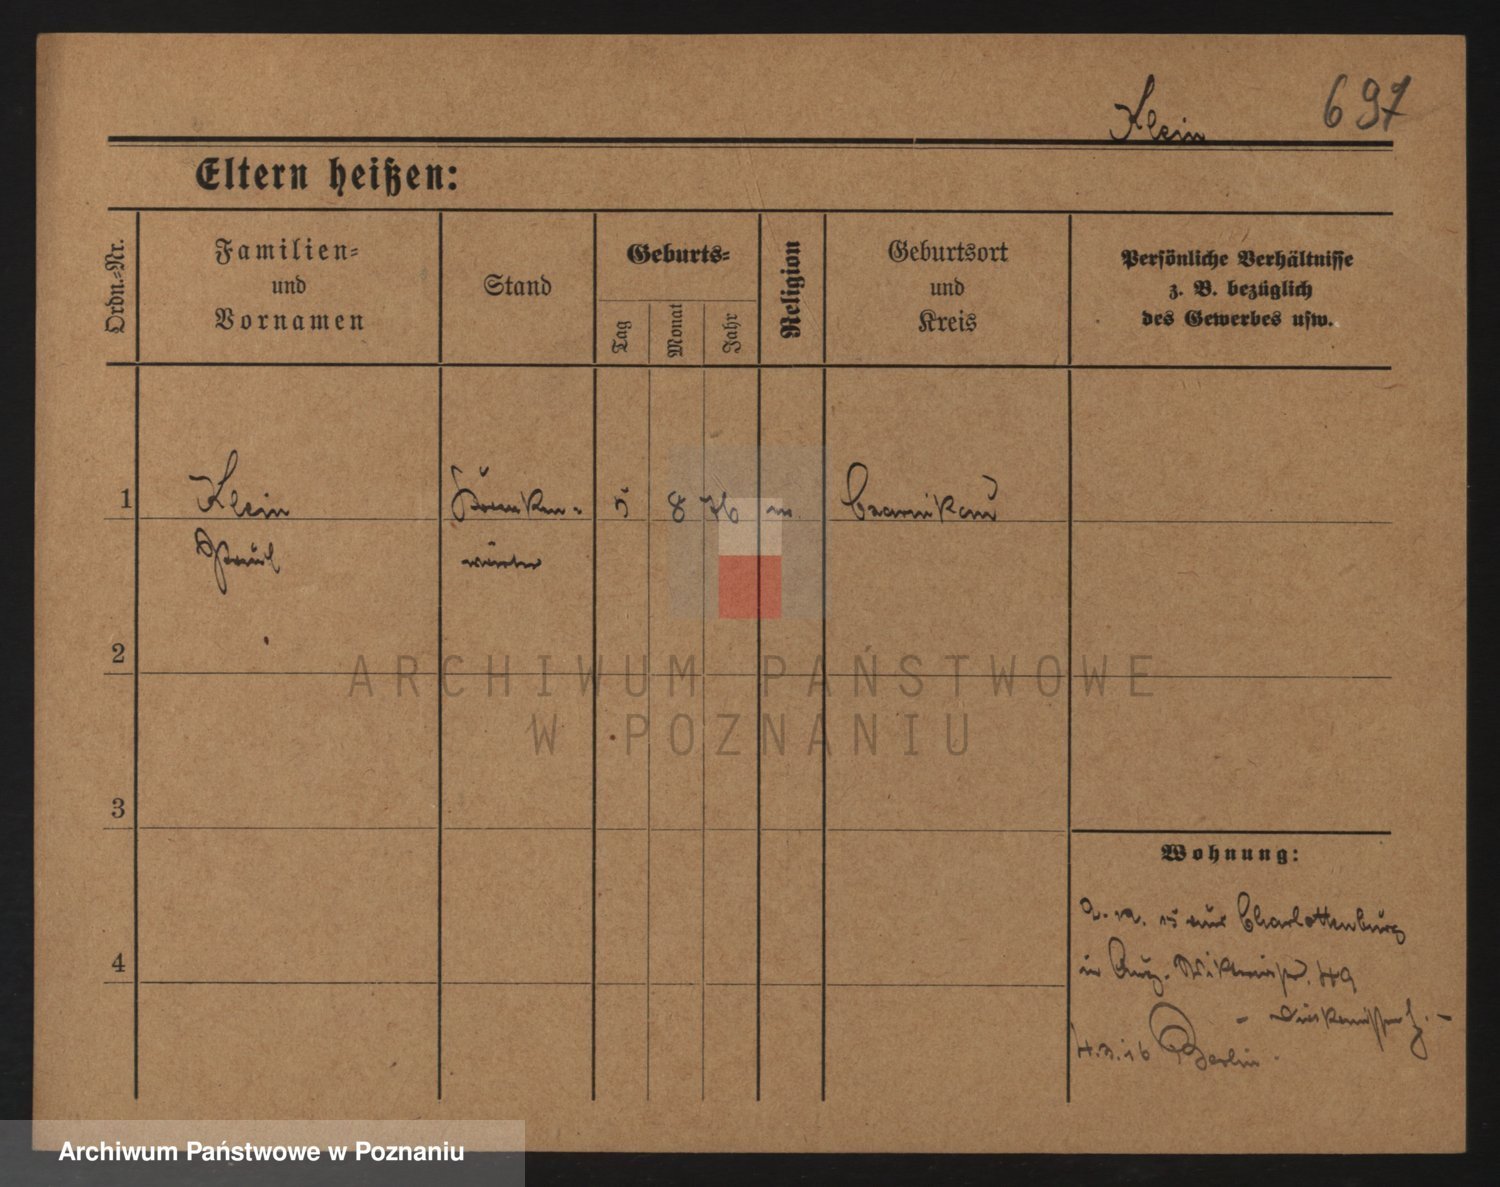 Klein 697
Eltern heißen:
Ordn.-Nr.
Familien-
und
Vornamen
Stand
Geburts-
Tag
Monat
Jahr
Religion
Geburtsort
und
Kreis
Persönliche Verhältnisse
z. B. bezüglich
des Gewerbes usw.
1 Klein Kranken- 5 8 76 Czarnikau
Paul wärter
2
3
4
Wohnung:
aus Charlottenburg
in Aug. Viktoriastr. 49
- Diakonissenh. -
Berlin
ARCHIWUM PAŃSTWOWE
W POZNANIU
Archiwum Państwowe w Poznaniu